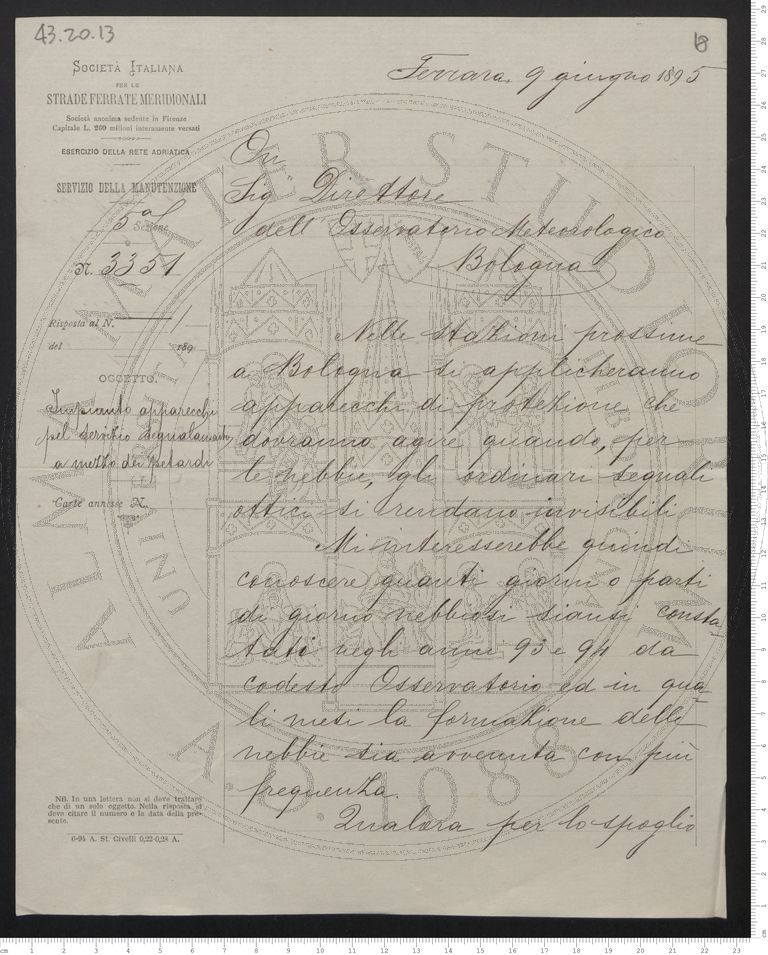 43.20.13
SOCIETÀ ITALIANA
PER LE
STRADE FERRATE MERIDIONALI
Società anonima sedente in Firenze
Capitale L. 260 milioni interamente versati
ESERCIZIO DELLA RETE ADRIATICA
SERVIZIO DELLA MANUTENZIONE
5a Sezione
N. 3351
Risposta al N.
del 189
OGGETTO.
Impianto apparecchi
pel servizio segnalamento
a mezzo dei petardi
Carte annesse N.
Ferrara, 9 giugno 1895
On.
Sig. Direttore
dell'Osservatorio Meteorologico
Bologna
Nelle stazioni prossime
a Bologna si applicheranno
apparecchi di protezione che
dovranno agire quando, per
le nebbie, gli ordinari segnali
ottici si rendano invisibili
Mi interesserebbe quindi
conoscere quanti giorni o parti
di giorno nebbiosi siansi consta-
tati negli anni 93 e 94 da
codesto Osservatorio ed in qua-
li mesi la formazione delle
nebbie sia avvenuta con più
frequenza.
Qualora per lo spoglio
NB. In una lettera non si deve trattare
che di un solo oggetto. Nella risposta si
deve citare il numero e la data della pre-
sente.
6-94 A. St. Civelli 0,22-0,28 A.
ALMA MATER STUDIORUM
A.D. 1088